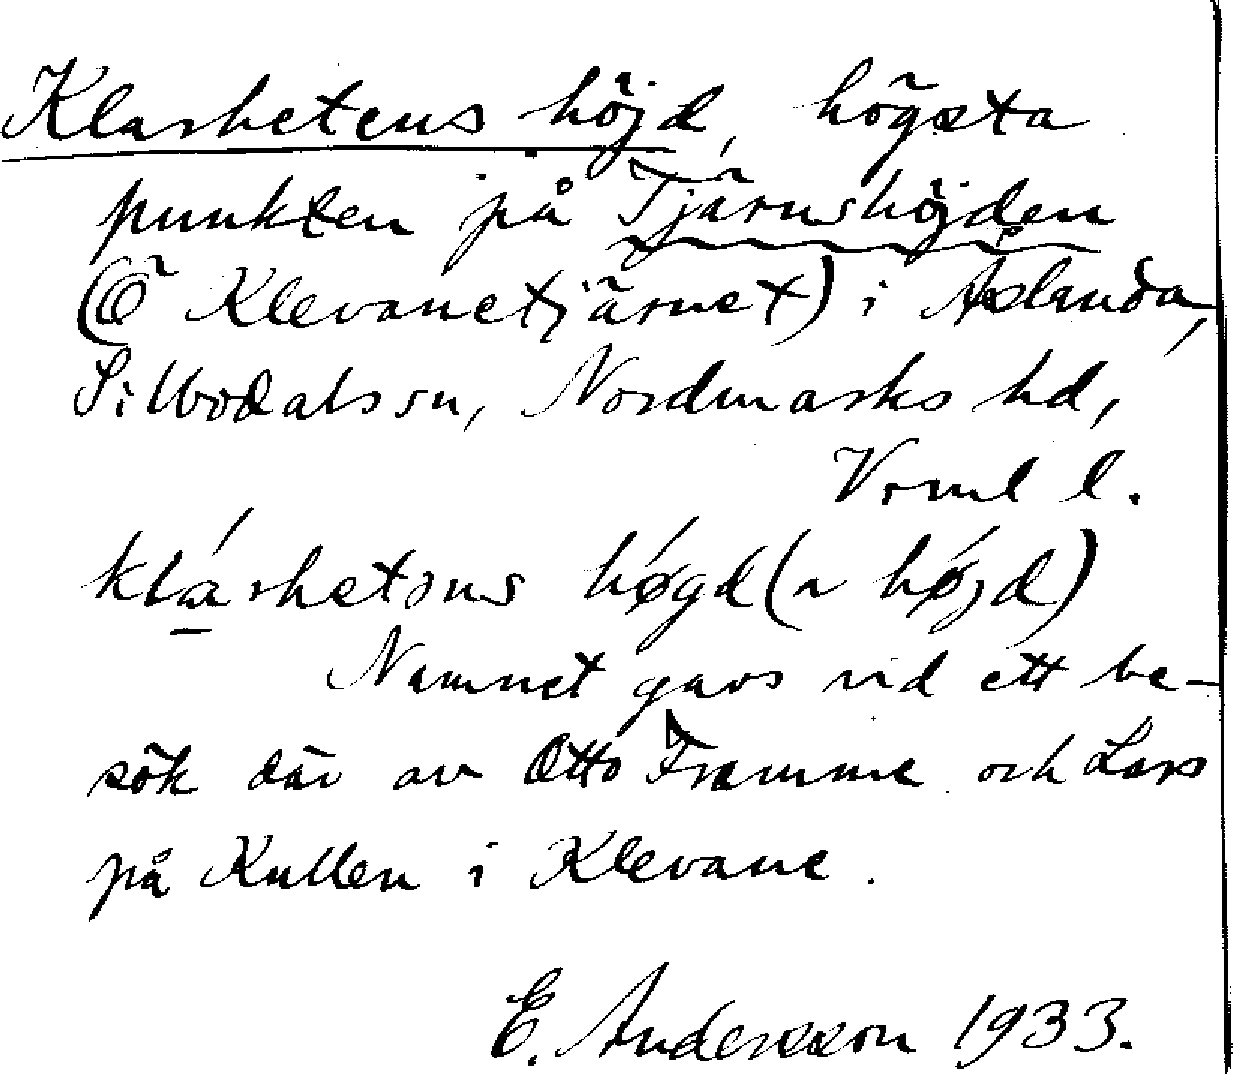 Klarhetens höjd, högsta
punkten på Tjärnshöjden
(Ö Klevanetjärnet) i Årlanda,
Sillbodals sn, Nordmarks hd,
Vrml l.
klárhetəns høgd (~ højd)
Namnet gavs vid ett be-
sök där av Otto Framme och Lars
på Kullen i Klevane.
E. Andersson 1933.